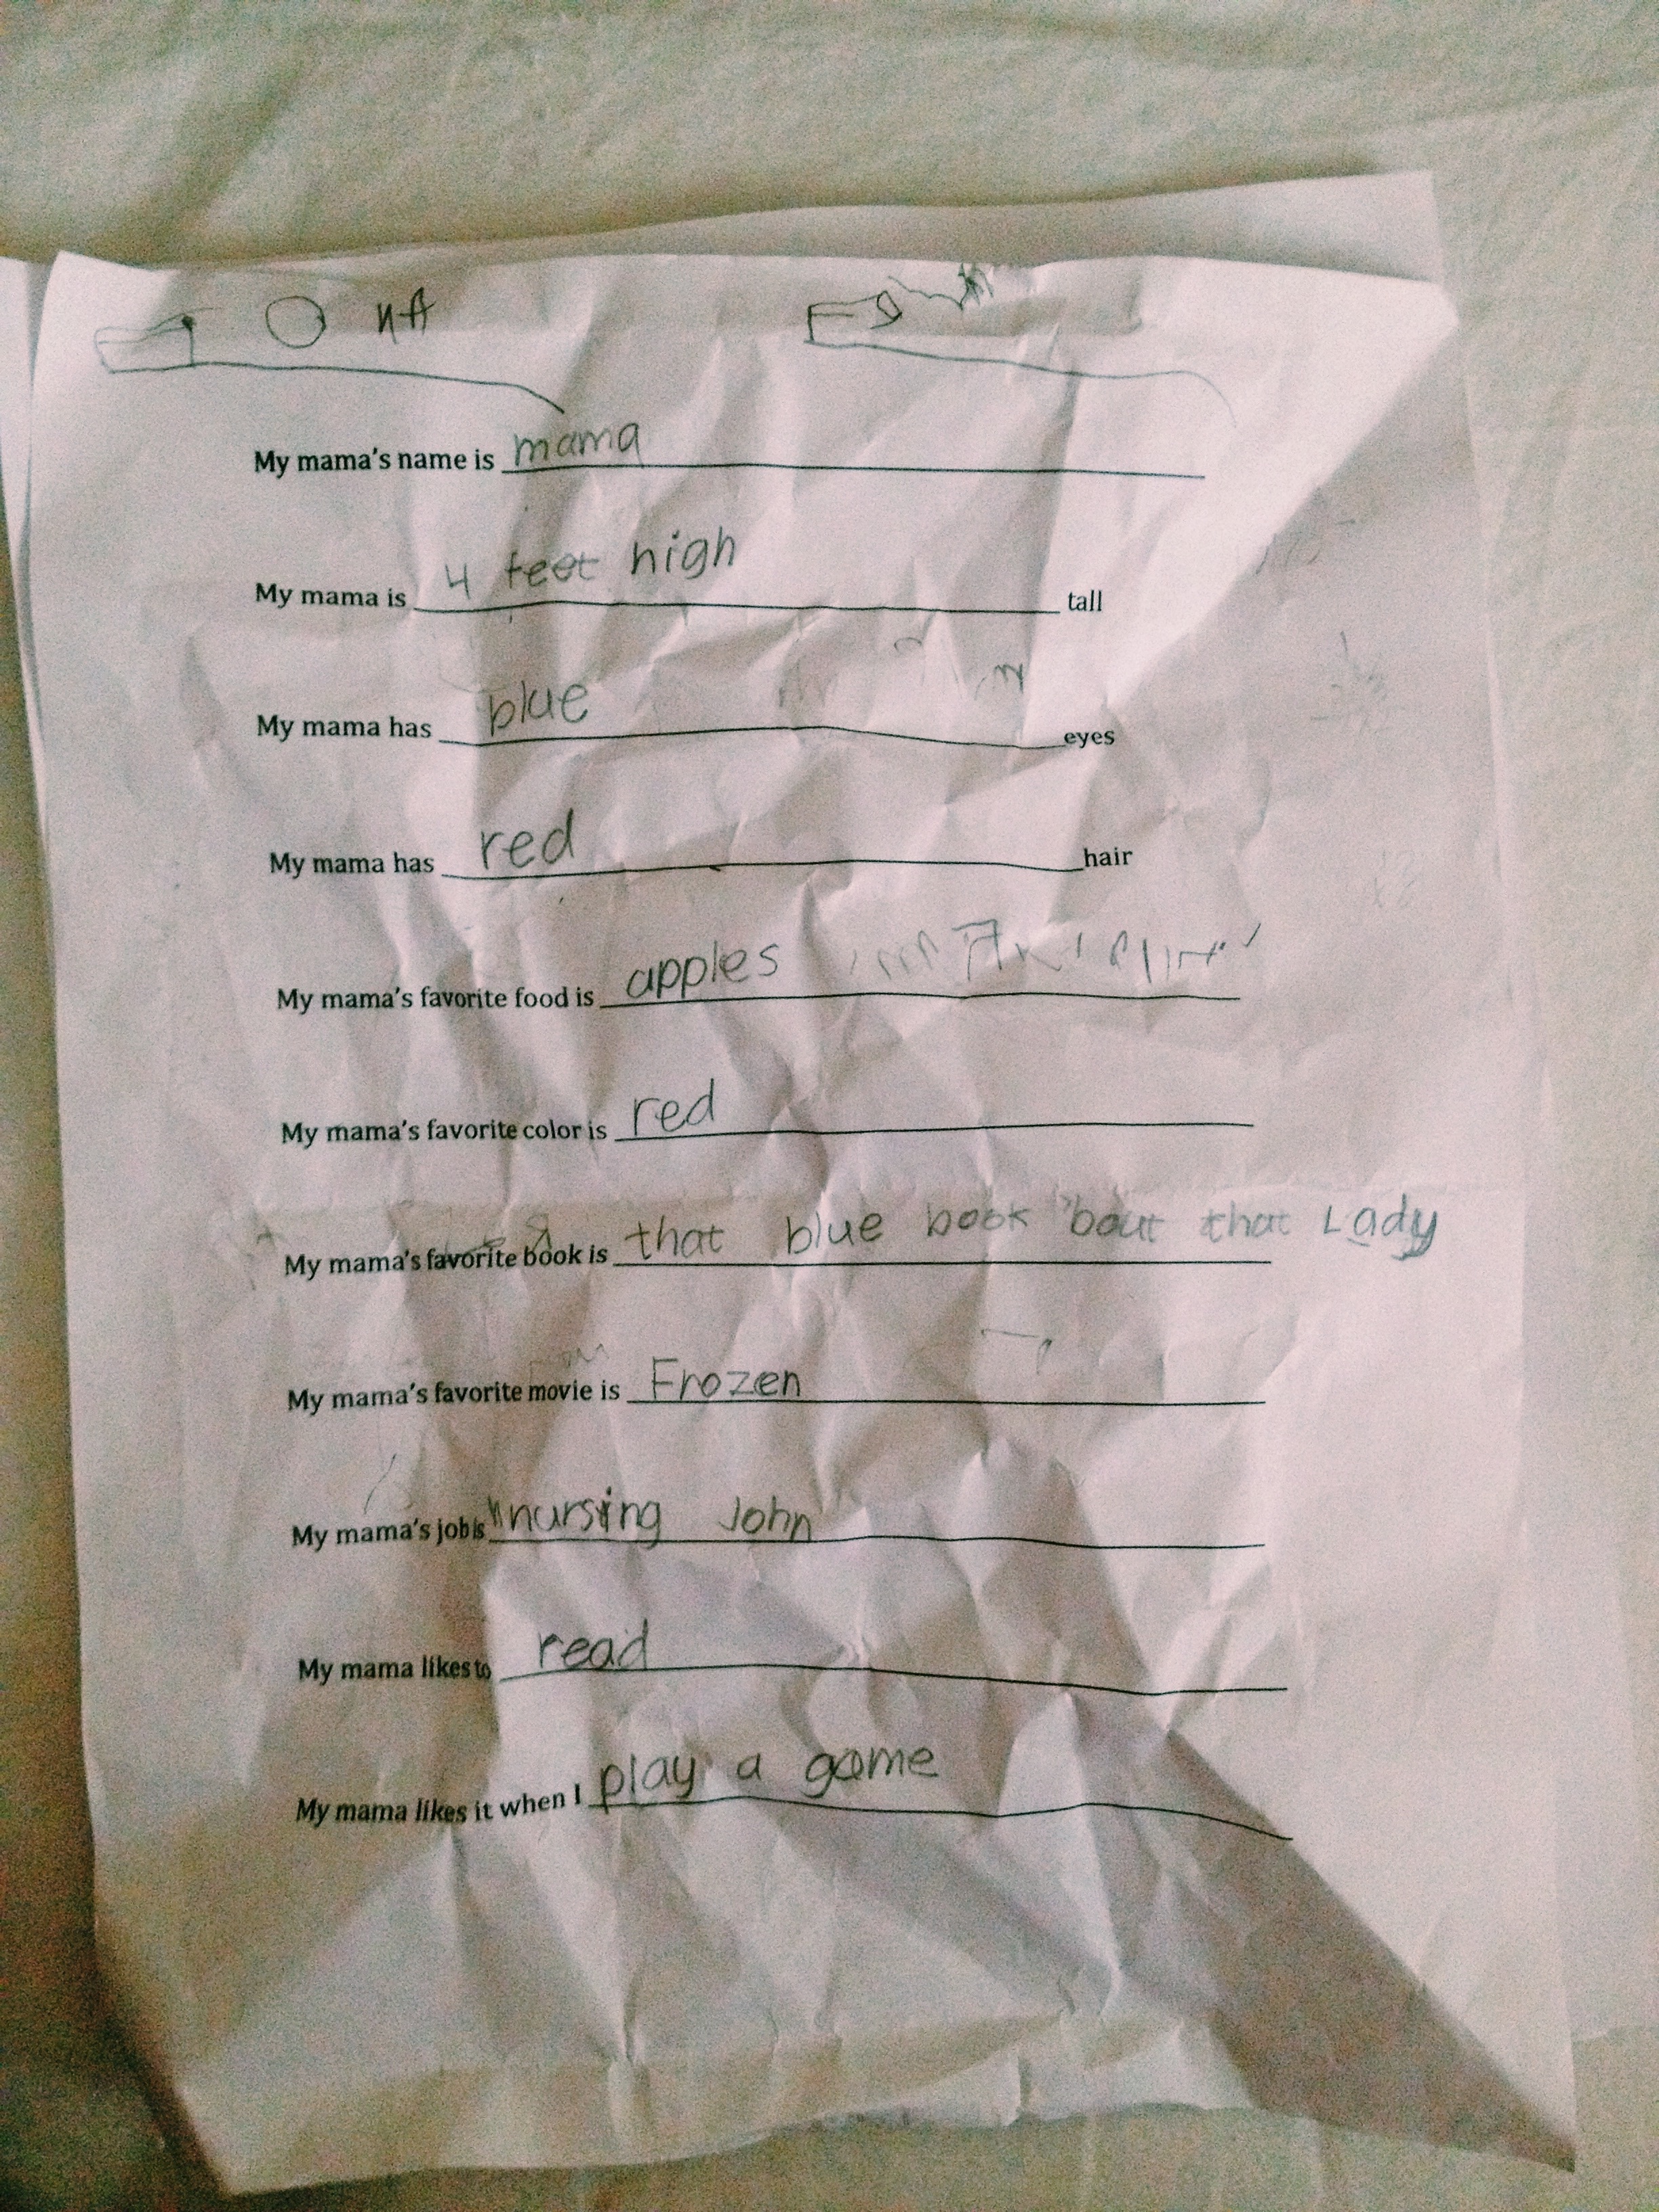 My mama's name is mama
My mama is 4 feet high tall
My mama has blue eyes
My mama has red hair
My mama's favorite food is apples
My mama's favorite color is red
My mama's favorite book is that blue book 'bout that Lady
My mama's favorite movie is Frozen
My mama's job is nursing John
My mama likes to read
My mama likes it when I play a game